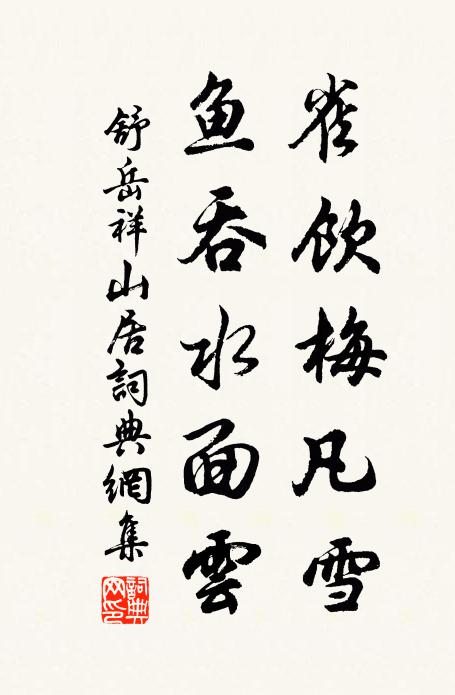 雀飲梅凡雪
鱼吞水面雲
舒岳祥山居詞典網集
詞典网印